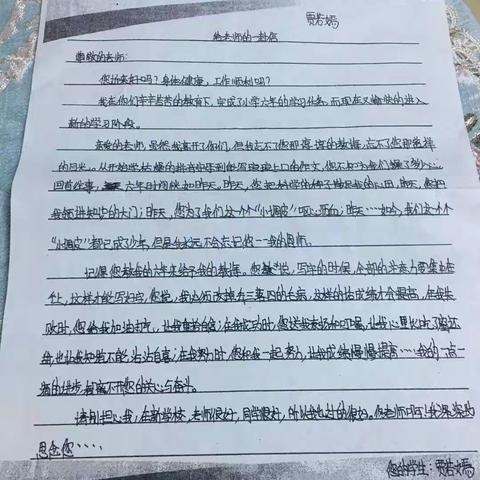 贾若嫣
给老师的一封信
尊敬的老师:
您近来好吗?身体健康,工作顺利吗?
我在你们辛辛苦苦的教育下,完成了小学六年的学习任务,而现在又愉快的进入
新的学习阶段。
亲爱的老师,虽然我离开了你们,但我忘不了您那谆谆的教诲,忘不了您那慈祥
的目光。从开始学枯燥的拼音字母到能写琅琅上口的作文,您不知为我们操了多少心。
回首往事,六年时间快如昨天。昨天,您把科学的种子撒在我的心田,昨天,您把
我领进知识的大门;昨天,您为了我们这个个"小调皮"呕心沥血;昨天……如今,我们这个个
"小调皮"都已成了少年,但是永远不会忘记您——我的恩师。
记得您教我的六年来给予我的教诲。您说,写字的时候,全部的注意力要集中在
上,这样才能写好字,您说,我必须改掉丢三落四的毛病,这样的话成绩才会提高,在我失
败时,您给我加油打气,让我重拾自信;在我成功时,您送我表扬和叮嘱,让我心里
也让我知道不能沾沾自喜;在我努力时,您和我一起努力,让我成绩慢慢提高……我的一点一
滴的进步,都离不开您的关心与奋斗。
请别担心我,在新学校,老师很好,同学很好,所以我也过的很好。你老师们呀!我深深地
思念您……
您的学生:贾若嫣